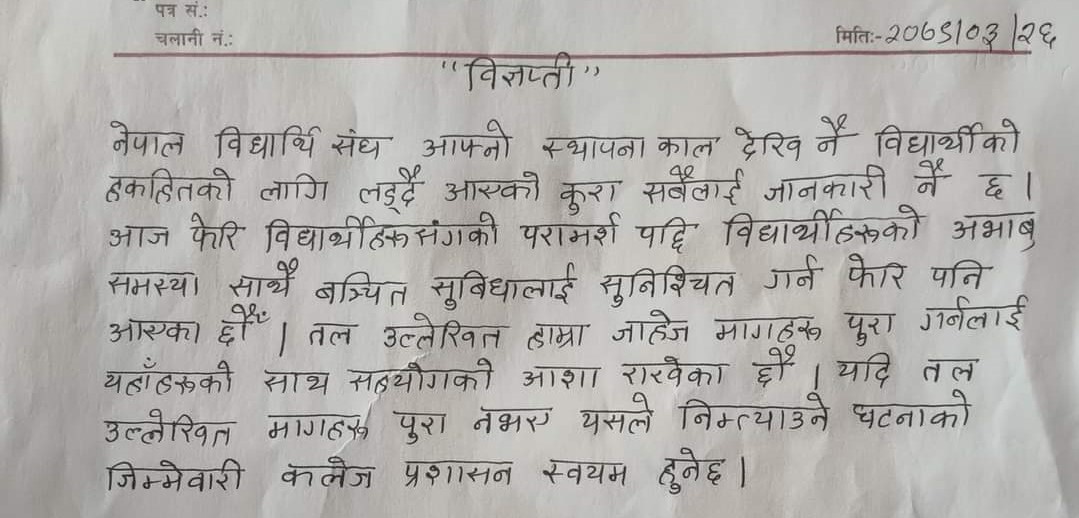 पत्र सं.:
चलानी नं.:
मितिः-२०७९/०३/२६
"विज्ञप्ती"
नेपाल विद्यार्थि संघ आफ्नो स्थापना काल देखि नै विद्यार्थीको
हकहितको लागि लड्दै आएको कुरा सबैलाई जानकारी नै छ ।
आज फेरि विद्यार्थीहरूसंगको परामर्श पछि विद्यार्थीहरूको अभाब,
समस्या साथै बञ्चित सुबिधालाई सुनिश्चित गर्न फेरि पनि
आएका छौं । तल उल्लेखित हाम्रा जाहेज मागहरू पुरा गर्नलाई
यहाँहरूको साथ सहयोगको आशा राखेका छौ । यदि तल
उल्लेखित मागहरू पुरा नभए यसले निम्त्याउने घटनाको
जिम्मेवारी कलेज प्रशासन स्वयम हुनेछ ।